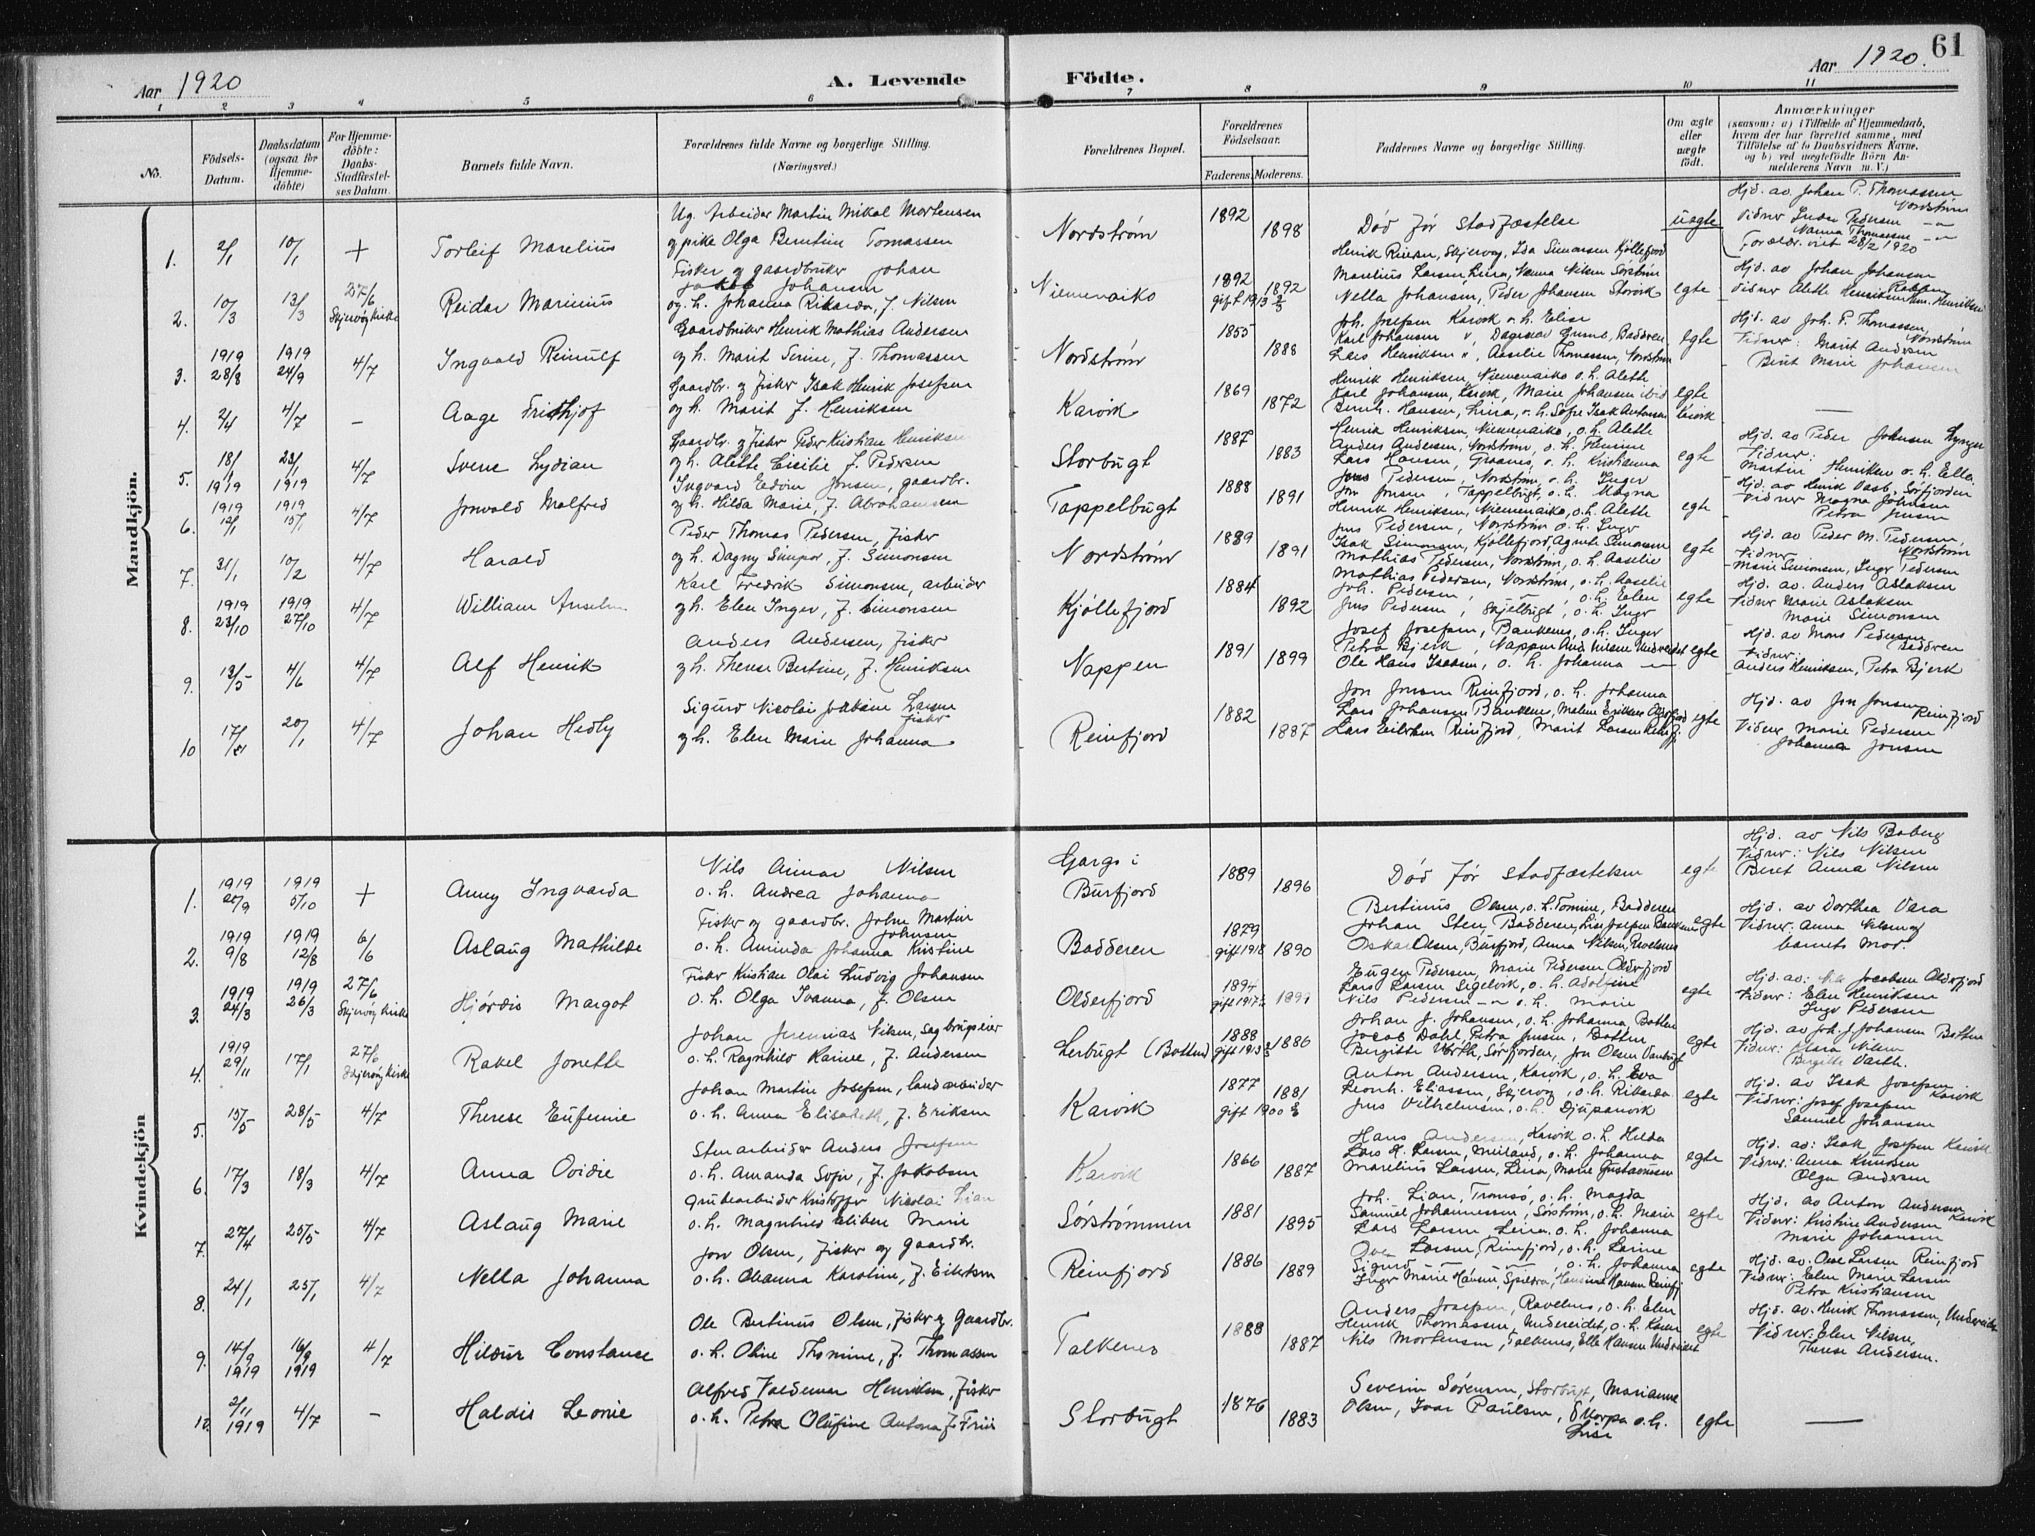 61
Aar 1920
A. Levende Födte.
Aar 1920.
1 2 3 4 5 6 7 8 9 10 11
No.
Födsels-
Datum.
Daabsdatum
(ogsaa for
Hjemme-
döbte)
For Hjemme-
döbte:
Daabs-
Stadfæstel-
ses Datum.
Barnets fulde Navn.
Forældrenes fulde Navne og borgerlige Stilling.
(Næringsvei.)
Forældrenes Bopæl.
Forældrenes
Födselsaar.
Faderens. Moderens.
Faddernes Navne og borgerlige Stilling.
Om ægte
eller
uægte
födt.
Anmærkninger
(saasom: a) i Tilfælde af Hjemmedaab,
hvem der har forrettet samme, med
Tilföielse af to Daabsvidners Navne.
og b) ved uegtefödte Börn An-
melderens Navn m. V.)
Mandkjön.
1. 2/1 10/1 + Torleif Marelius
Ug. Arbeider Martin Mikal Mortensen
og pike Olga Berntine Tomassen
Nordstrøm 1892 1898
Död før Stadfæstelse
uegte
Hjd. av Johan P. Thomassen
Nordstrøm
Vidner Pedersen
Nanna Thomassen
Forældr. viet 28/2 1920
2. 10/3 13/3 27/6 Skjervøy kirke Reidar Marinius
Fisker og gaardbruker Johan
Johansen
og h. Johanna Rikarda, f. Nilsen
Niemenaiko 1892 gift 1913 1892
Henrik Skjervøy, Ida Simonsen Kjøllefjord
Marelius Larsen, Leira, Nanna Nilsen Sørstrøm
Nella Johansen, Peder Johansen Storvik
egte
Hjd. av Johan Johansen
Vidner Alette Henriksen
3. 1919 28/8 1919 24/9 4/7 Ingvald Reinulf
Gaardbruker Henrik Mathias Andersen
og h. Marit Serine, f. Thomassen
Nordstrøm 1855 1888
Joh. Josefsen Karvik o. h. Elise
Karl Johansen Badderen
Lars Henriksen Aaselie Thomassen, Nordstrøm
egte
Hjd. av Joh. P. Thomassen,
Nordstrøm
Vidner: Marit Andersen
Berit Marie Johansen
4. 2/4 4/7 - Aage Fridthjof
Gaardbr. og fisker Isak Henrik Josefsen
og h. Marit f. Henriksen
Karvik 1869 1872
Henrik Henriksen, Niemenaiko o. h. Alette
Karl Johansen, Karvik, Marie Johansen ibid
Bernh. Hansen, Leira, o. h. Sofie Isak Antonsen Karvik
egte
—
5. 18/1 1919 23/1 1919 4/7 Svene Lydian
Gaardbr. og fisker Peder Kristian Henriksen
og h. Alette Cicilie f. Pedersen
Storbugt 1887 1883
Henrik Henriksen, Niemenaiko, o. h. Alette
Anders Andersen, Nordstrøm, o. h.
Lars Hansen, o. h. Kristianna
egte
Hjd. av Peder Johnsen Lyngen
Vidner:
Martin Henriksen o. h. Ellen
6. 1919 12/1 1919 15/1 4/7 Jonvald Malfred
Ingvard Edvin Jonsen, gaardbr.
og h. Hilda Marie, f. Abrahamsen
Tappelbugt 1888 1891
Jens Pedersen, Nordstrøm o. h. Inger
Jon Jonsen, Tappelbugt, o. h. Magna
Henrik Henriksen, Niemenaiko, o. h. Alette
egte
Hjd. av Henrik Sørfjorden
Vidner Magna Johnsen
Petra Jensen
7. 31/1 10/2 4/7 Harald
Peder Thomas Pedersen, fisker
og h. Dagny f. Simonsen
Nordstrøm 1889 1891
Jens Pedersen, Nordstrøm o. h. Inger
Isak Simonsen, Kjøllefjord, Agnete Simonsen
Mathias Pedersen, Nordstrøm, o. h. Aaselie
egte
Hjd. av Peder M. Pedersen,
Nordstrøm
Vidner
Marie Simonsen, Inger Pedersen
8. 1919 23/10 1919 27/10 4/7 William Anselm
Karl Fredrik Simonsen, arbeider
og h. Elen Inger, f. Simonsen
Kjøllefjord 1884 1892
Mathias Pedersen, Nordstrøm, o. h. Aaselie
Joh. Pedersen, o. h. Elen
Jens Pedersen, Skjelbugt, o. h. Inger
egte
Hjd. av Anders Aslaksen
Vidner Marie Aslaksen
Marie Simonsen
9. 13/5 4/6 4/7 Alf Henrik
Anders Andersen, fisker
og h. Therese Bertine, f. Henriksen
Nappen 1891 1899
Josef Josefsen, Bankenes, o. h. Inger
Petra Bjerk, Nappen And. Nilsen Undereidet
Ole Hans Isaksen, o. h. Johanna
egte
Hjd. av Mons Pedersen
Badderen
Vidner:
Anders Henriksen, Petra Bjerk
10 17/1 20/1 4/7 Johan Hedly
Sigurd Nicolai Larsen
fisker
og h. Elen Marie Johanna
Reinfjord 1882 1887
Jon Jonsen Reinfjord, o. h. Johanna
Lars Johansen Bankenes, Malene Eriksen Olderfjord
Lars Eilertsen Reinfjord, Marit Larsen Reinfj.
egte
Hjd. av Jon Jonsen
Reinfjord
Vidner Marie Pedersen
Johanna Jonsen
Kvindekjön
1. 1919 25/9 1919 5/10 + Anny Ingvarda
Nils Nilsen
o. h. Andrea Johanna
Gargo i
Burfjord 1889 1896
Död før Stadfæstelsen
egte
Hjd. av Nils Boberg
Vidner: Nils Nilsen
Beret Anna Nilsen
2. 1919 9/8 1919 12/8 6/6 Aslaug Mathilde
Fisker og gaardbr. John Martin
Johnsen
o. h. Aminda Johanna Kristine
Badderen 1879 gift 1918 1890
Bertinus Olsen, o. h. Tomine, Badderen
Johan Sten, Badderen, Lise Josefsen Bankenes
Oskar Olsen, Burfjord, Anna Nilsen, Ravelsnes
egte
Hjd. av Dorthea Vara
Vidner: Anna Nilsen og
barnets mor.
3. 1919 24/3 1919 26/3 27/6 Skjervøy kirke Hjørdis Margot
Fisker Kristian Olai Ludvig Johansen
o. h. Olga Ivanna, f. Olsen
Olderfjord 1894 gift 1917
Eugen Pedersen, Marie Pedersen Olderfjord
Lars Larsen Segelvik, o. h. Adolfine
Nils Pedersen o. h. Marie
egte
Hjd. av: Jacobsen Olderfjord
Vidner: Elen Henriksen
Inger Pedersen
4. 1919 29/11 17/1 27/6 Skjervøy kirke Rakel Jonette
Johan Jeremias Nilsen, sagbrugseier
o. h. Ragnhild Karine, f. Andersen
Lerbugt (Botten) 1888 gift 1913 1886
Johan J. Johansen, o. h. Johanna Botten
Jacob Dahl, Petra Jensen, Botten
Birgitte Varth, Sørfjorden, Jon Olsen
egte
Hjd. av Joh. J. Johansen Botten
Vidner: Klara Nilsen
Birgitte Varth.
5. 15/5 28/5 4/7 Therese Eufemie
Johan Martin Josefsen, landarbeider
o. h. Anna Elisabeth, f. Eriksen
Karvik 1877 gift 1900 1881
Anton Andersen, Karvik, o. h. Eva
Leonh. Eliassen, Skjervøy, o. h. Rikarda
Jens Vilhelmsen, o. h. Djupanvik
egte
Hjd. av Isak Josefsen
Karvik
Vidner: Josef Josefsen
Samuel Johansen
6. 17/3 18/3 4/7 Anna Ovidie
Stenarbeider Anders Josefsen
o. h. Amanda Sofie, f. Jakobsen
Karvik 1866 1887
Hans Andersen, Karvik o. h. Hilda
Lars K. Larsen, Meiland, o. h. Johanna
Marelius Larsen, Leira, Marie Gustavsen
egte
Hjd. av: Isak Josefsen Karvik
Vidner: Anna Knudsen
Olga Andersen
7. 27/4 25/5 4/7 Aslaug Marie
Grubearbeider Kristoffer Nicolai Lian
o. h. Magnhild Elibere Marie
Sørstrømmen 1881 1895
Joh. Lian, Tromsö, o. h. Magda
Samuel Johannessen, Sørstrøm, o. h. Marie
Lars Larsen Leira o. h. Johanna
egte
Hjd. av Anton Andersen
Karvik
Vidner: Kristine Andersen
Marie Johansen
8. 24/1 25/1 4/7 Nella Johanna
Jon Olsen, fisker og gaardbr.
o. h. Karoline, f. Eilertsen
Reinfjord 1886 1889
Larsen, Reinfjord, o. h. Larine
Sigurd o. h. Johanna
Inger Marie Hansen, Spildra, Hansine Hansen Reinfj.
egte
Hjd. av Larsen Reinfjord
Vidner: Elen Marie Larsen
Petra Kristiansen
9. 14/9 1919 16/9 1919 4/7 Hildur Constanse
Ole Bertinus Olsen, fisker og gaardbr.
o. h. Oline Thomine, f. Thomassen
Talkenes 1888 1887
Anders Josefsen, Ravelsnes, o. h. Elen
Henrik Thomassen, Undereidet, o. h. Karen
Nils Mortensen, Talkenes, Elle Hansen Undereidet
egte
Hjd. av Henrik Thomassen, Undereidet
Vidner: Elen Nilsen,
Therese Andersen.
10. 2/11 1919 4/7 - Haldis Leonie
Alfred Valdemar Henriksen, fisker
o. h. Petra Olufine Antona f. Friis
Storbugt 1876 1883
Severin Sørensen, Storbugt, Marianne
Olsen, Ivar Paulsen, Skorpa o. h.
Lise
egte
—